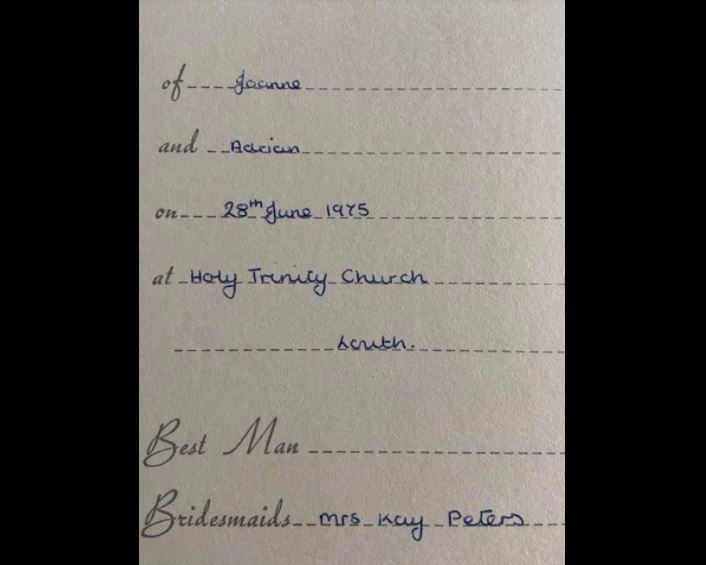 of Joanne
and Adrian
on 28th June 1975
at Holy Trinity Church
Louth.
Best Man
Bridesmaids Mrs Kay Peters